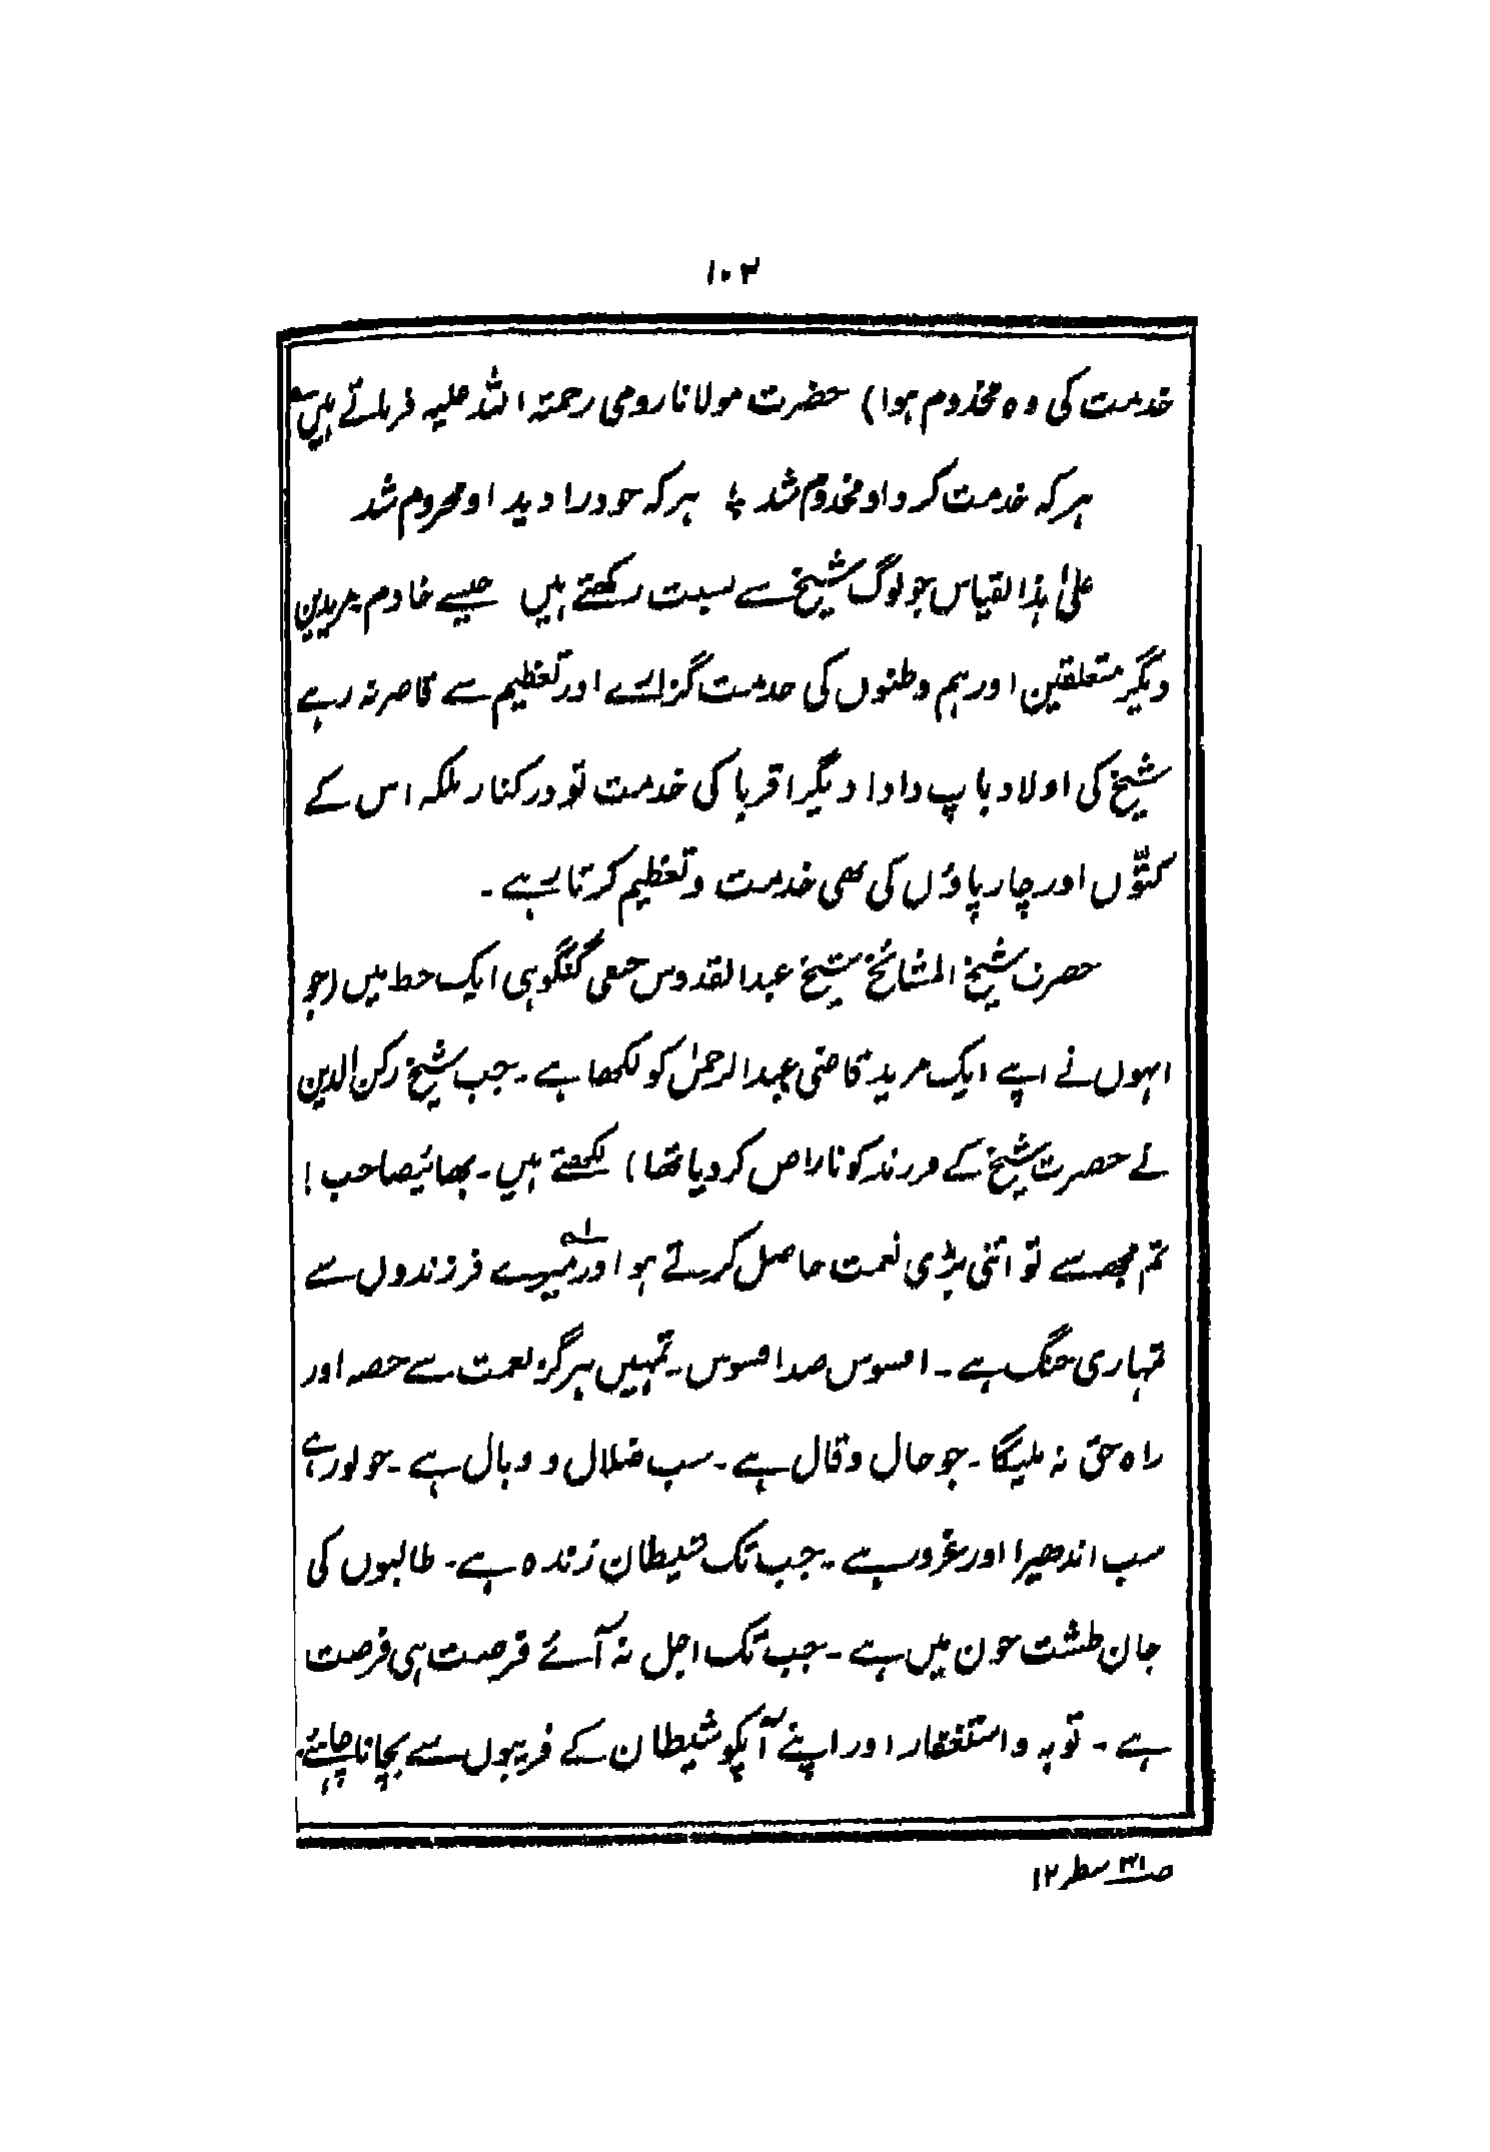 ۱۰۳
خدمت کی وہ مخدوم ہوا) حضرت مولانا رومی رحمتہ اللہ علیہ فرماتے ہیں ؎
ہر کہ خدمت کرد او مخدوم شد ؛ ہر کہ خود را دید او محروم شد
علیٰ ہذا القیاس جو لوگ شیخ سے نسبت رکھتے ہیں جیسے خادم مریدین
دیگر متعلقین اور ہم وطنوں کی خدمت گزاری اور تعظیم سے قاصر نہ رہے
شیخ کی اولاد باپ دادا دیگر اقربا کی خدمت تو درکنار بلکہ اس کے
کتوں اور چارپاؤں کی بھی خدمت و تعظیم کرتا رہے ۔
حضرت شیخ المشائخ شیخ عبدالقدوس حنفی گنگوہی ایک خط میں (جو
انہوں نے اپنے ایک مرید قاضی عبدالرحمٰن کو لکھا ہے ۔ جب شیخ رکن الدین
نے حضرت شیخ کے فرزند کو ناراض کر دیا تھا) لکھتے ہیں ۔ بھائیصاحب !
تم مجھسے تو اتنی بڑی نعمت حاصل کرتے ہو اور میرے فرزندوں سے
تمہاری جنگ ہے ۔ افسوس صد افسوس ۔ تمہیں ہرگز نعمت سے حصہ اور
راہ حق نہ ملیگا ۔ جو حال و قال ہے ۔ سب ضلال و وبال ہے ۔ جو نور ہے
سب اندھیرا اور غرور ہے ۔ جب تک شیطان زندہ ہے ۔ طالبوں کی
جان طشت خون میں ہے ۔ جب تک اجل نہ آئے فرصت ہی فرصت
ہے ۔ توبہ و استغفار اور اپنے آپکو شیطان کے فریبوں سے بچانا چاہئے
صـ۳۱ سطر ۱۲